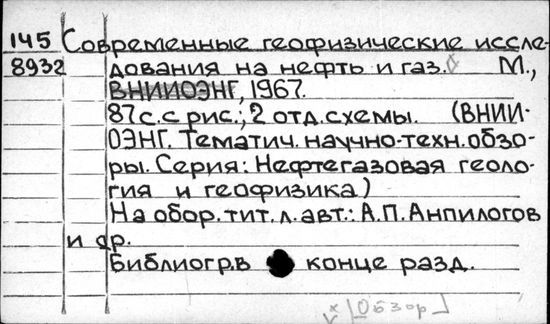 145 Современные геофизические иссле-
8932 дования на нефть и газ. М.,
ВНИИОЭНГ, 1967.
87 с. с рис.; 2 отд. схемы. (ВНИИ-
ОЭНГ. Тематич. научно-техн. обзо-
ры. Серия: Нефтегазовая геоло-
гия и геофизика)
На обор. тит. л. авт.: А.П. Анпилогов
и др.
Библиогр. в конце разд.
[Обзор]